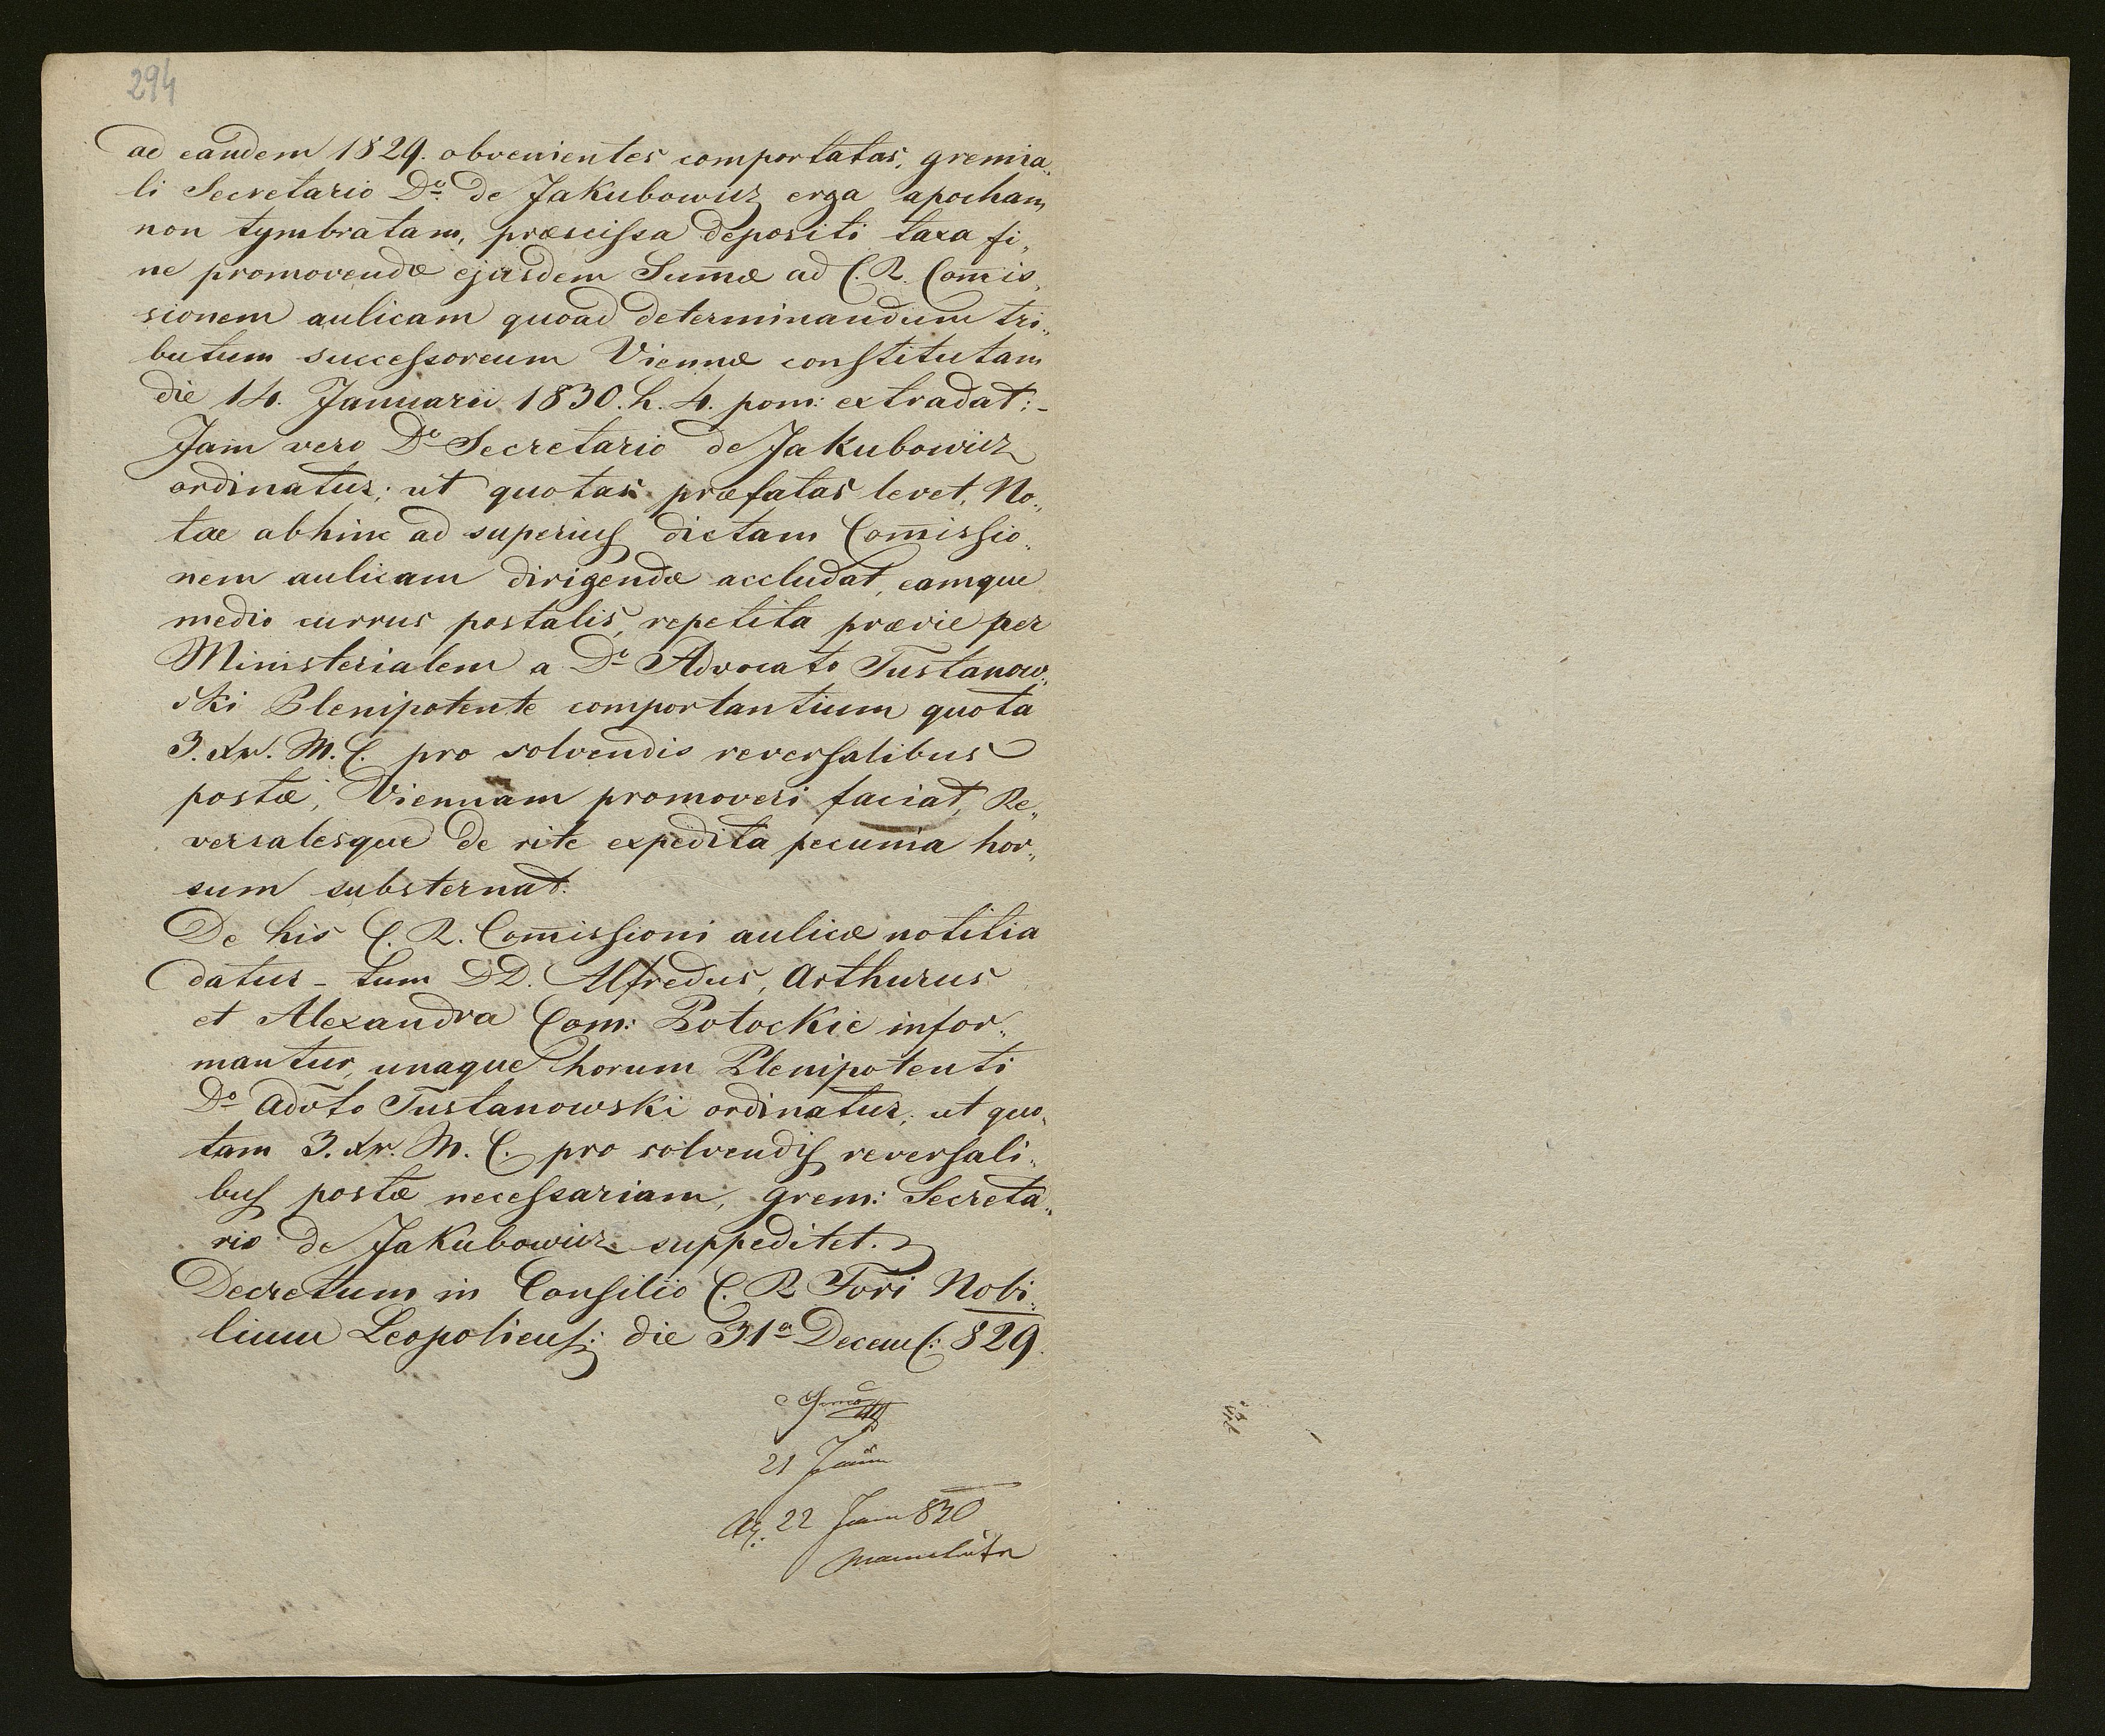 294
ad eandem 1829. obvenientes comportatas, gremia„
li Secretario Do de Jakubowicz erga apocham
non tymbratam, præscissa depositi taxa fi„
ne promovendæ ejusdem Sum̄æ ad C. R. Com̄is„
sionem aulicam quoad determinandum tri„
butum successoreum Viennæ constitutam
die 14. Januarii 1830. h. 4. pom: extradat:-
Jam vero Do Secretario de Jakubowicz
ordinatur; ut quotas præfatas levet, No„
tæ abhinc ad superius dictam Com̄issio„
nem aulicam dirigendæ accludat, eamque
medio currus postalis, repetita prævie per
Ministerialem a Do Advocato Tustanow„
ski Plenipotente comportantium quota
3. Xr. M. C. pro solvendis reversalibus
postæ, Viennam promoveri faciat, Re„
versalesque de rite expedita pecunia hor„
sum substernat.
De his C. R. Com̄issioni aulicæ notitia
datur - tum DD. Alfredus, Arthurus
et Alexandra Com: Potockie infor„
mantur, unaque horum Plenipotenti
Do Advto Tustanowski ordinatur; ut quo„
tam 3. Xr. M. C. pro solvendis reversali„
bus postæ necessariam, grem: Secreta„
rio de Jakubowicz suppeditet.
Decretum in Consilio C. R Fori Nobi„
lium Leopoliens: die 31a Decem: 829.
21 Jann
22 Jann 830